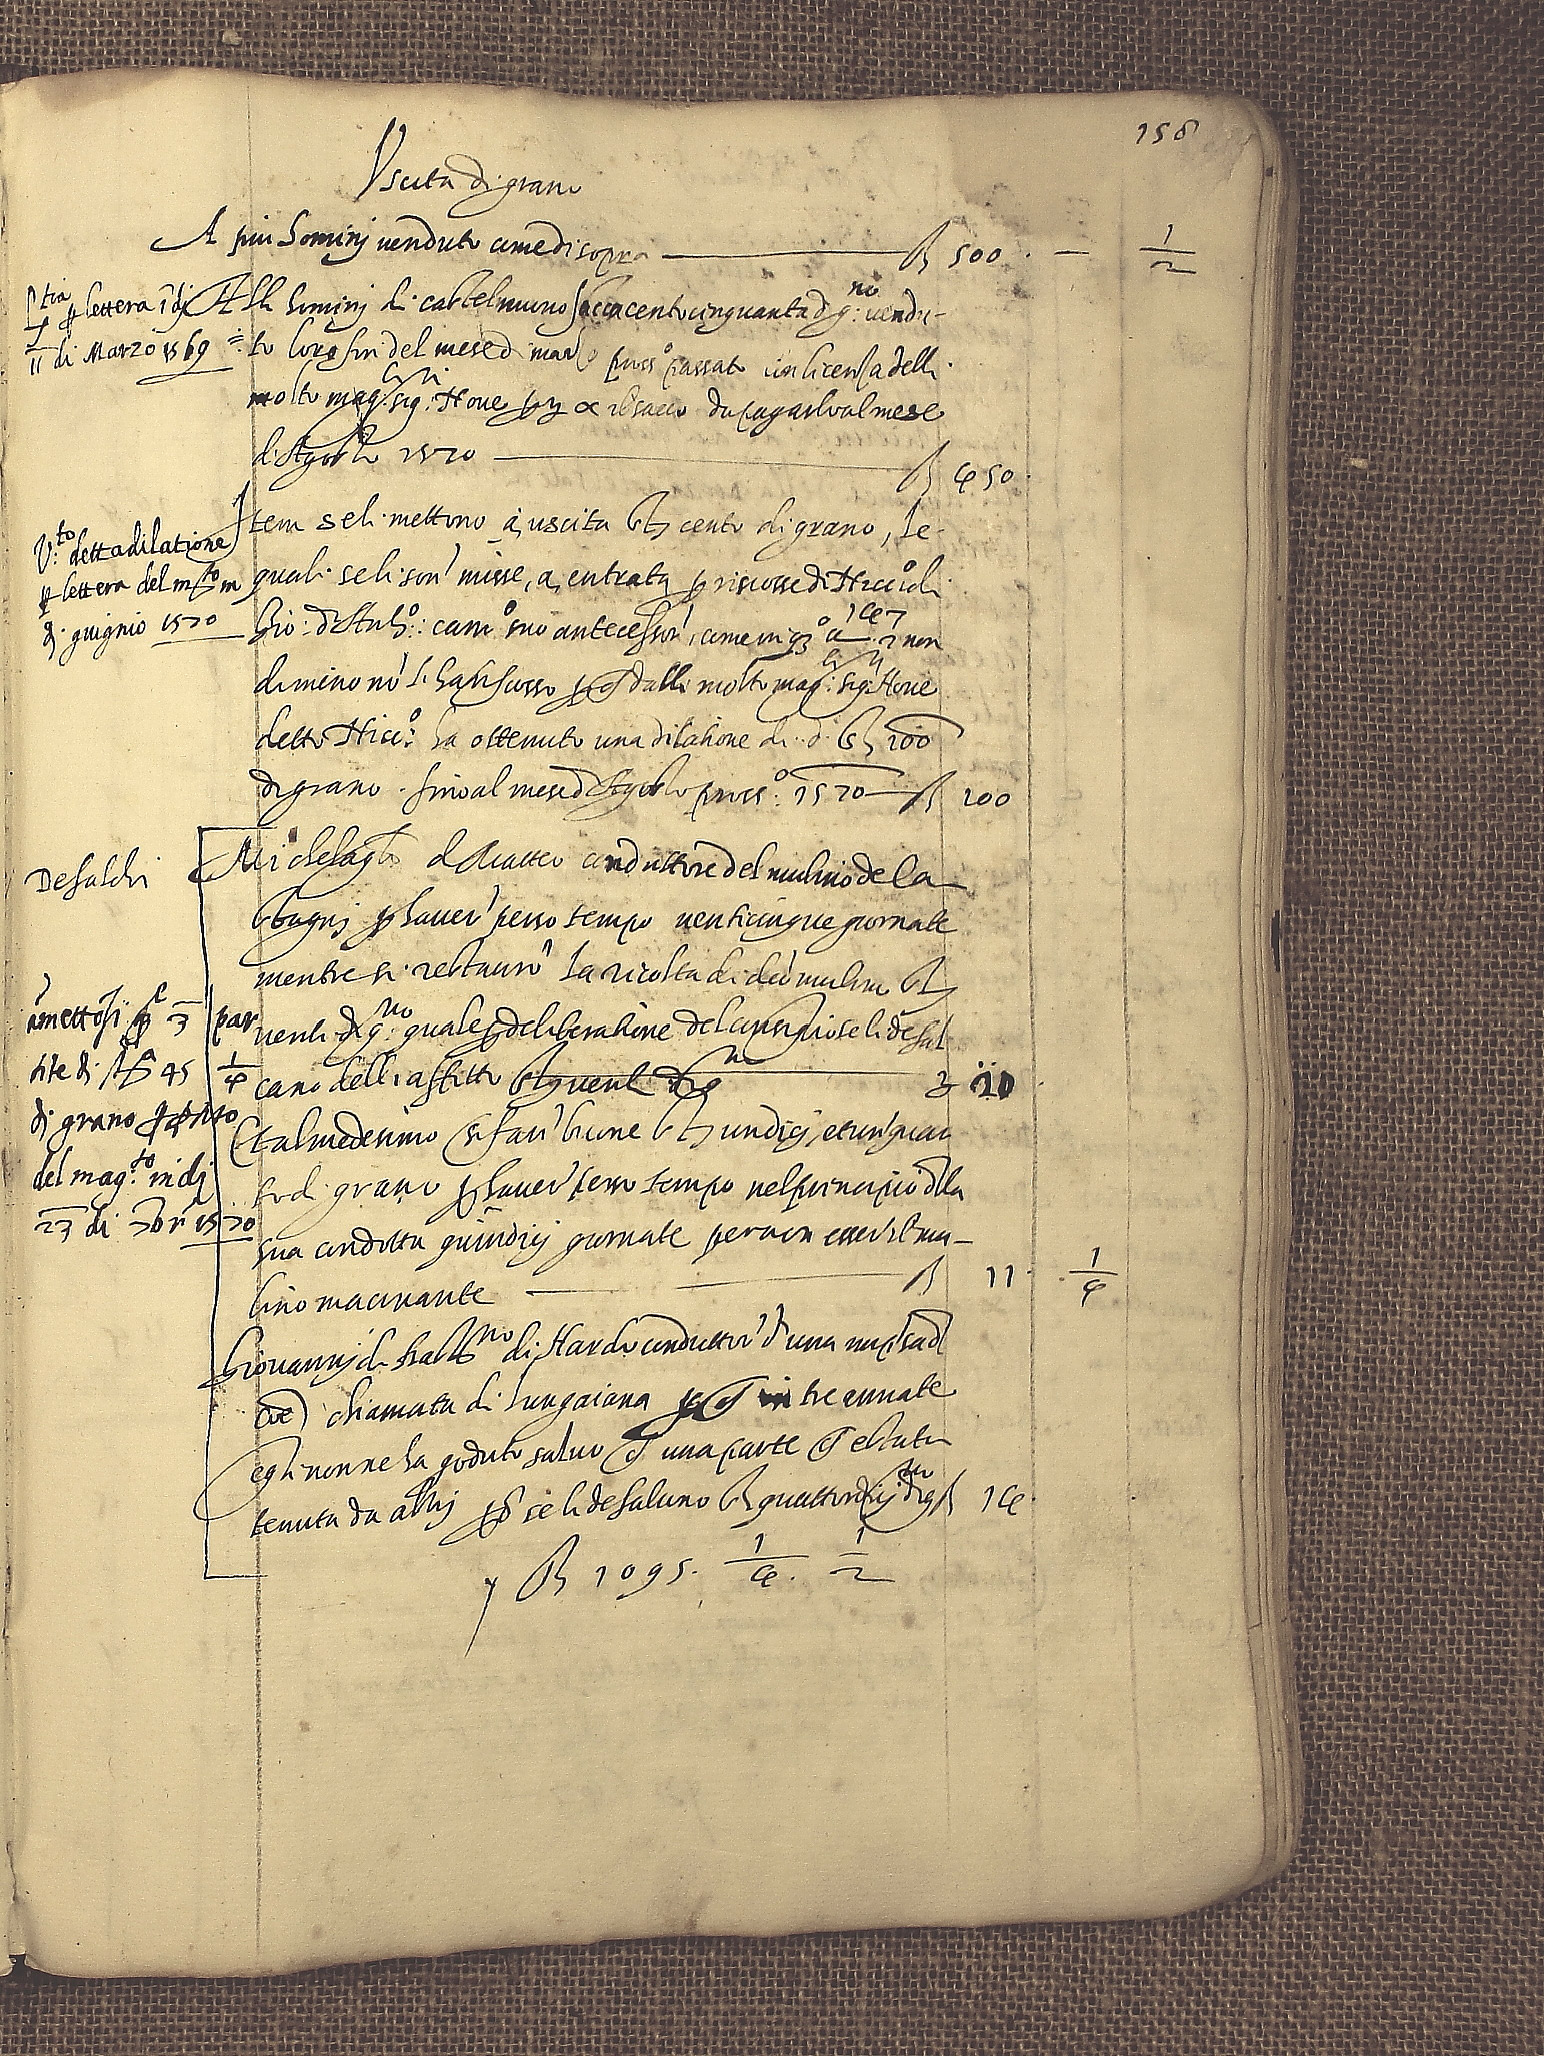 158
Uscita di grano
A piu homini venduto come di sopra 500 — 1/2
lettera
11 di Marzo 1569
Alli homini di castelnuovo sacca cento cinquanta di g:no vendu-
to loro sin del mese di marzo pross.o passato con licenza delli
molto mag.ci sig.ri Nove il sacco da pagarlo al mese
di Agosto 1570 450
V.to detta dilatione
lettera del
di giugnio 1570
Item se li mettono a uscita cento di grano, le-
quali se li son' misse, a, entrata riscosse di Nicc.olo
suo antecessor', come in q.o a 147 non
dimino no' li ha riscosso dalli molto mag.ci sig.ri Nove
detto Nicc.o ha ottenuto una dilatione di d. 100
di grano . fino al mese d'Agosto pross:o 1570 100
Defalchi
Michelag.lo di Matteo conduttore del mulino de la
Bagni haver' perso tempo venticinque giornate
mentre si restauro' la ricolta di detto mulino
venti di g:no quale deliberatione del se li defal
cano dell'affitto 20
amettosi 3 par
tite di 45 1/4
di grano
del mag.to in dj
23 di 7br' 1570
Et al medesimo si fan' buone undicj, et un quar
to di grano haver' perso tempo nel principio della
sua condotta quindicj giornate per non esser' il mu-
lino macinante 11 1/4
Giovannj di di Nardo conduttor' d'una
chiamata di Lungaiana in tre annate
egli non ne ha goduto salvo una parte e stata
tenuta da altrj se li defalcano quattordicj di g.no 14
1095. 1/4. 1/2